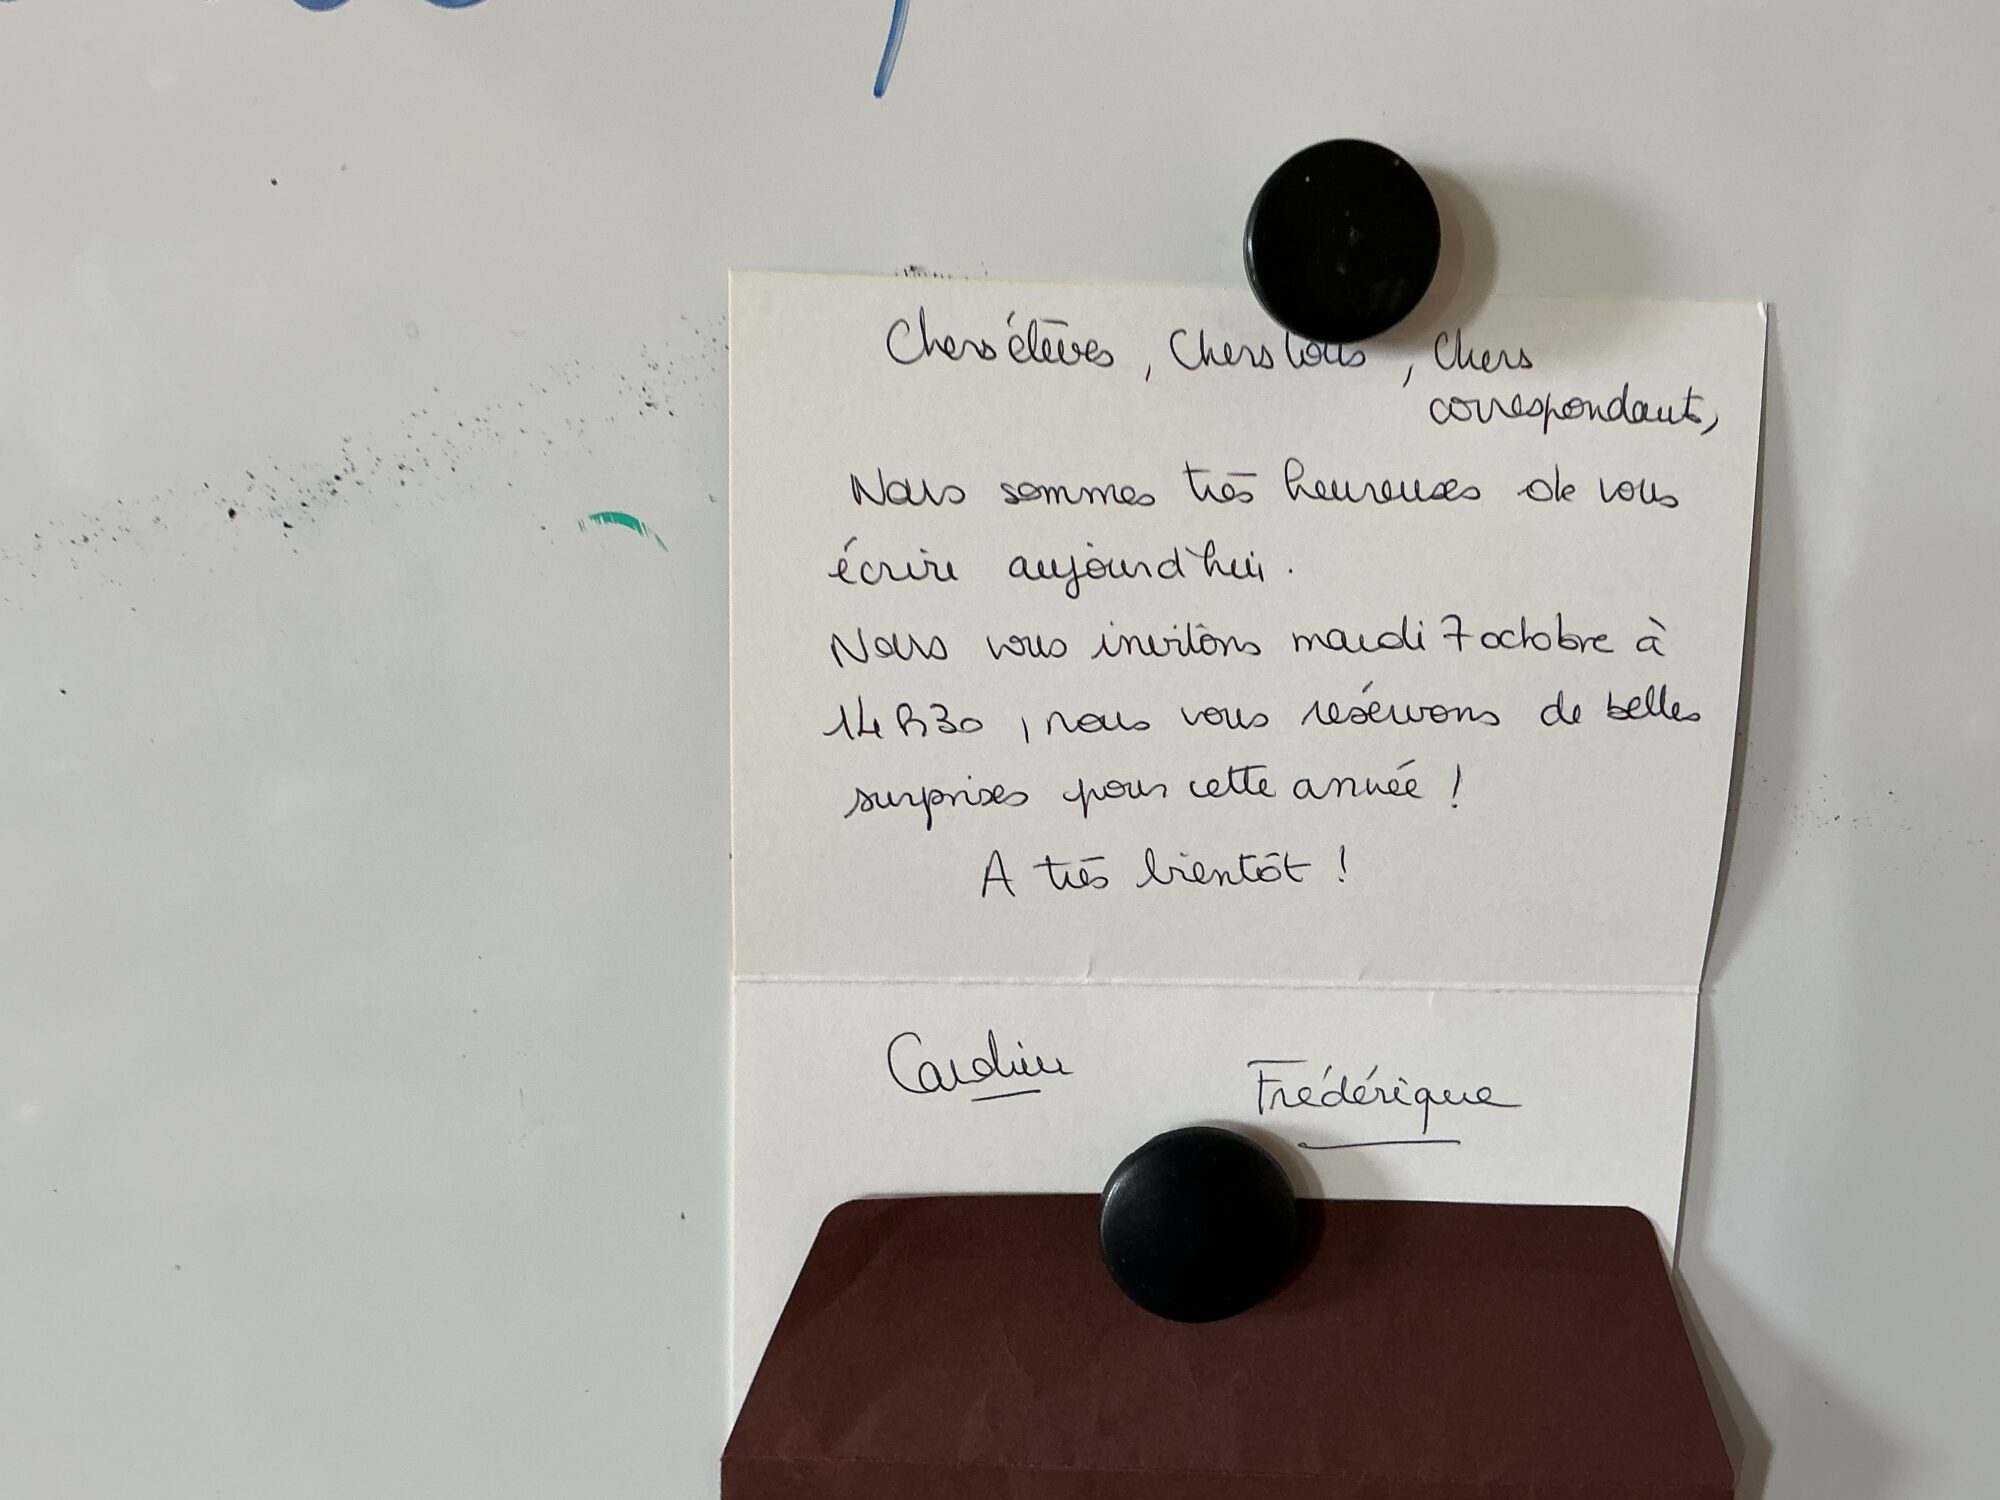 Chers élèves, Chers tous, Chers
correspondants,
Nous sommes très heureuses de vous
écrire aujourd'hui.
Nous vous invitons mardi 7 octobre à
14h30, nous vous réservons de belles
surprises pour cette année !
A très bientôt !
Frédérique